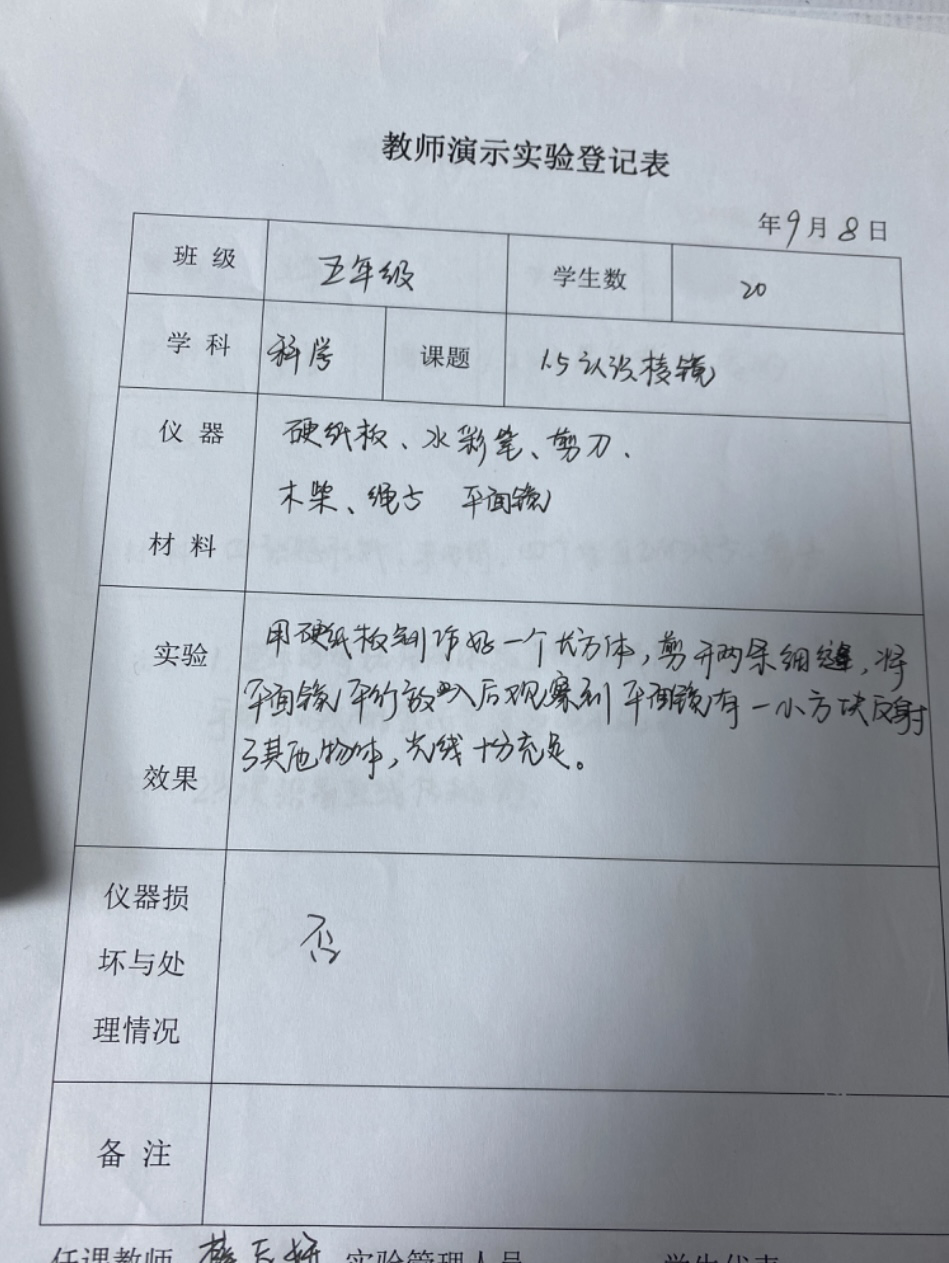 教师演示实验登记表
年9月8日
班 级 五年级 学生数 20
学 科 科学 课题 1.5认识棱镜
仪 器 硬纸板、水彩笔、剪刀、
木柴、绳 平面镜
材 料
实验 用硬纸板制作好一个长方体,剪开两条细缝,将
平面镜平行放入后观察到平面镜有一小方块反射
了其他物体,光线十分充足。
效果
仪器损
坏与处 否
理情况
备 注
任课教师 实验管理人员 学生代表